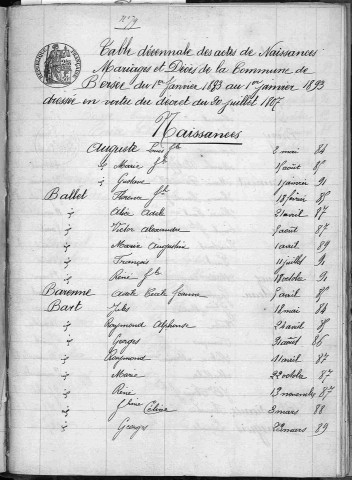 Table décennale des actes de Naissances
Mariages et Décès de la Commune de
du 1er Janvier 1883 au 1er Janvier 1893
dressée en vertu du décret du 20 juillet 1807
Naissances
Auguste Louis fs 2 mai 84
" Marie fs août 85
" Gustave 1 janvier 91
Ballet Florence fs 18 février 85
" Alice Adèle 21 avril 87
" Victor Alexandre août 87
" Marie Augustine 1 avril 89
" François 11 juillet 91
" René fs 18 octobre 91
Baronne Cécile Jeanne avril 85
Bart Jules 18 mai 84
" Raymond Alphonse avril 85
" Georges août 86
" Raymond 11 avril 87
" Marie 22 octobre 87
" René 13 novembre 87
" Céline 3 mars 88
" Georges 22 mars 89